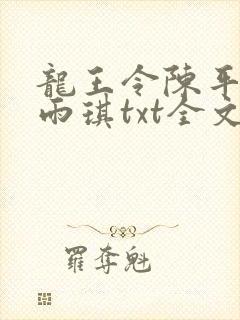 龍王令陳平
雨琪txt全文
羅奪魁